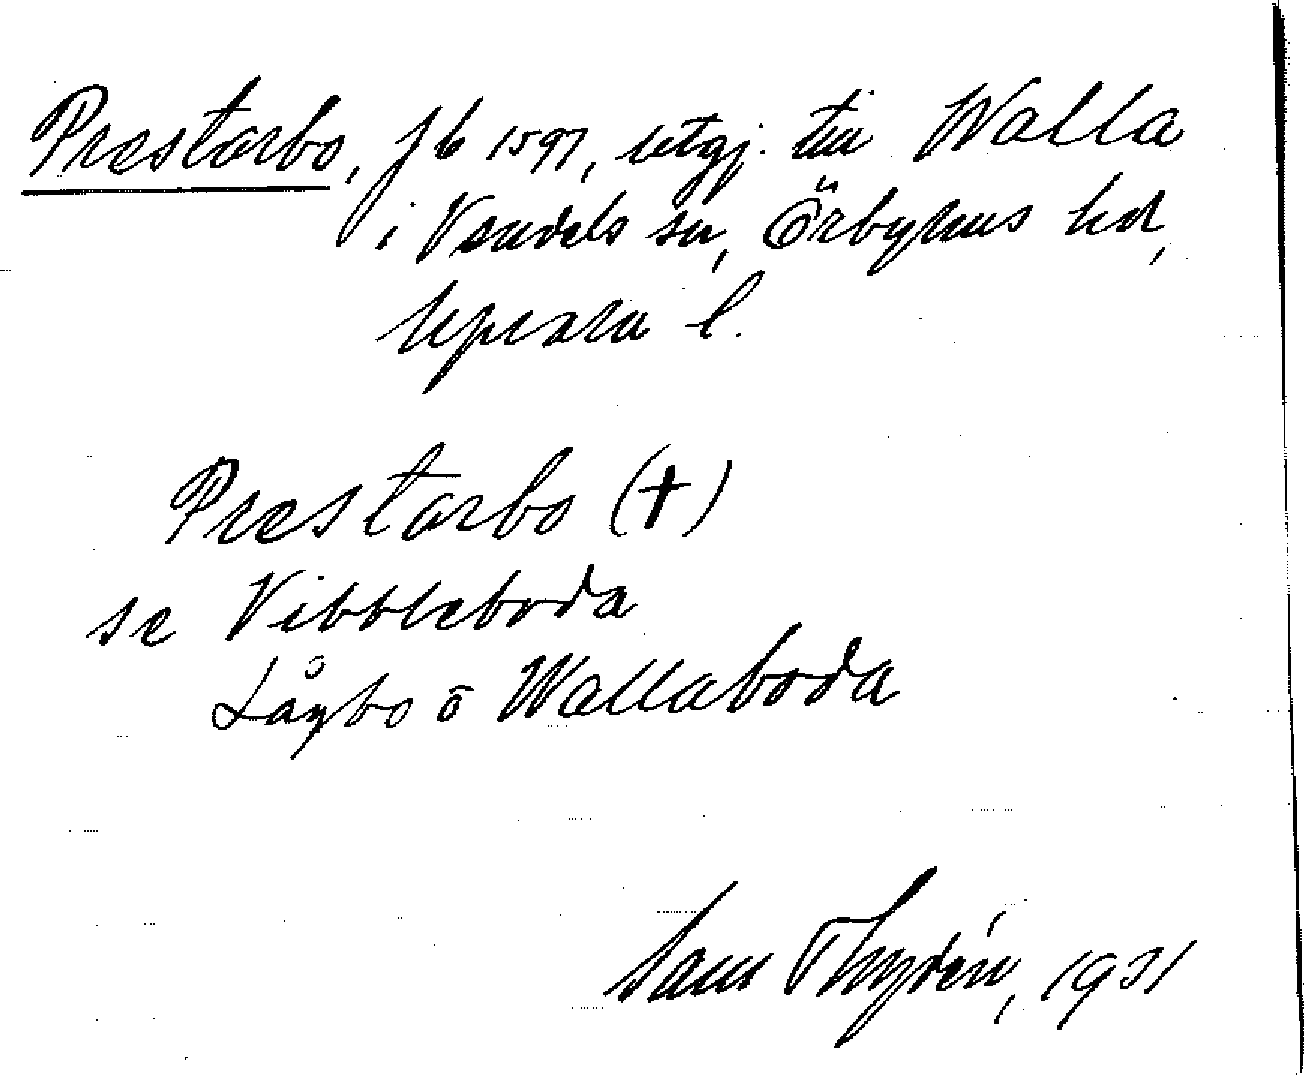 Prestarbo, jb 1597, utgj. till Walla
i Vendels sn, Örbyhus hd,
Upsala l.
Prestarbo (†)
se Vibbleboda
Lågbo o Wallaboda
Sam Thydén, 1931